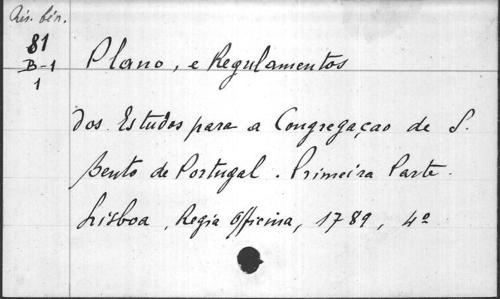 Rés. bén.
81
B-1
1
Plano, e Regulamentos
dos Estudos para a Congregaçao de S.
Bento de Portugal. Primeira Parte.
Lisboa, Regia Officina, 1789, 4º